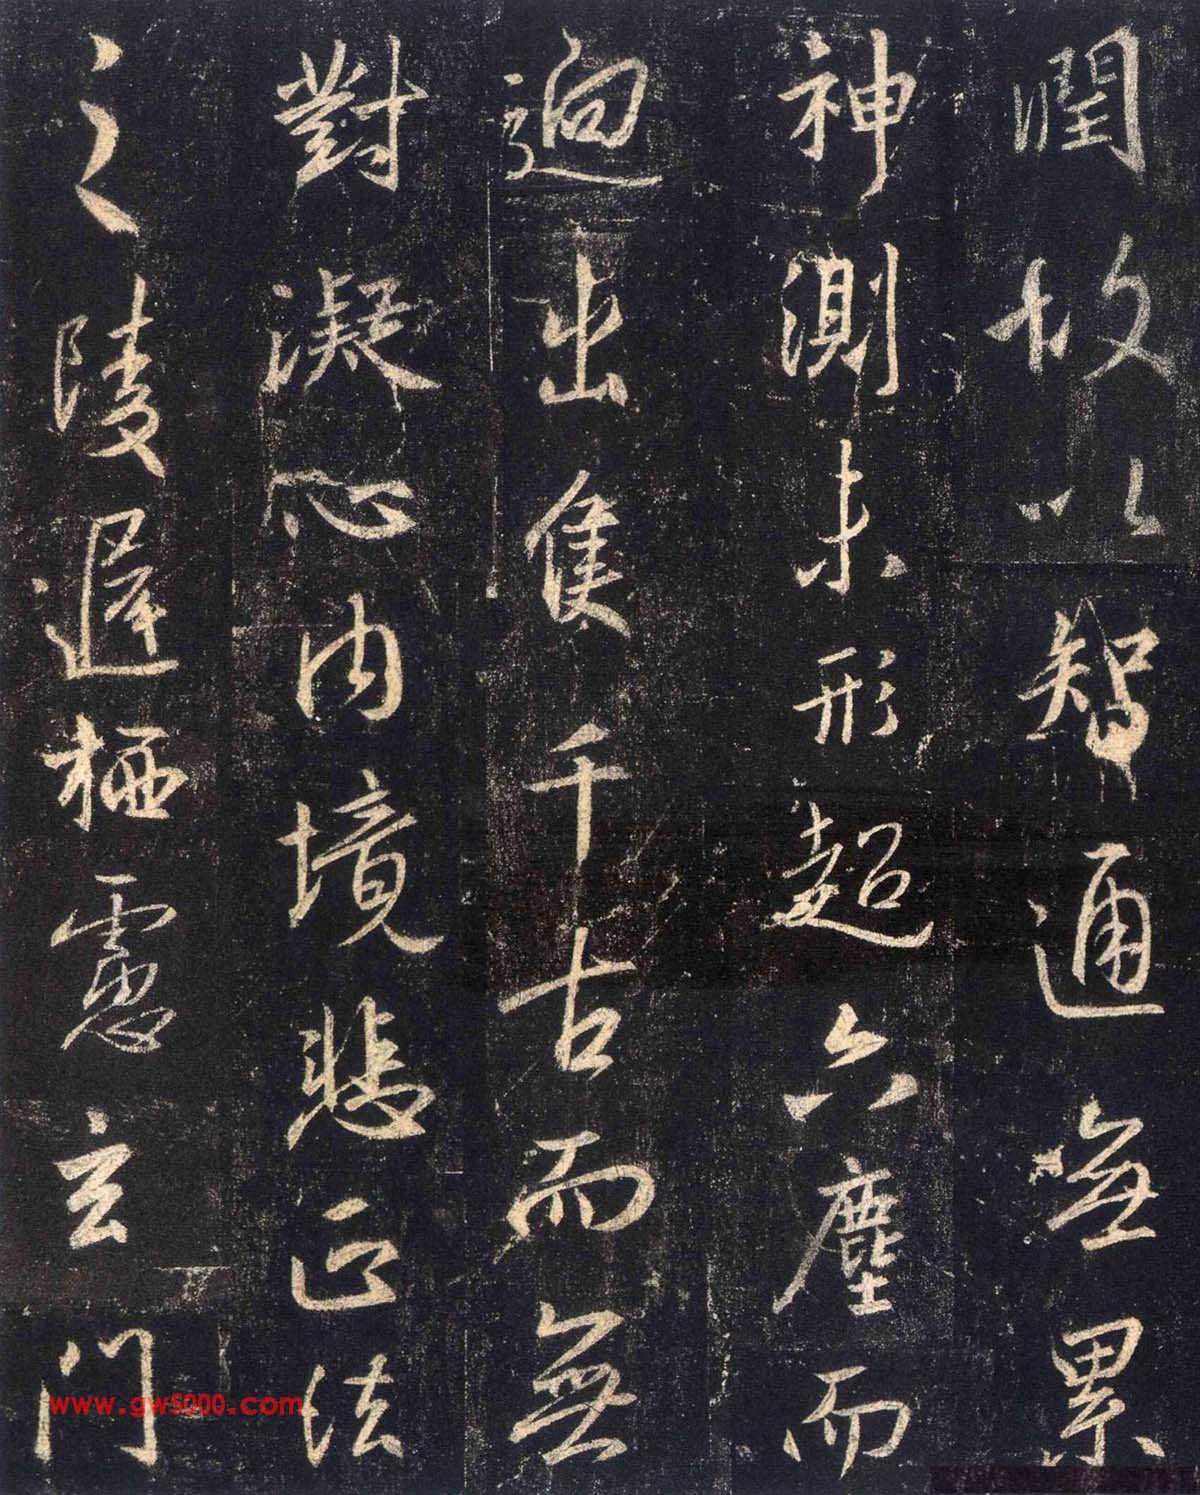 潤故以智通無累
神測未形超六塵而
迥出隻千古而無
對凝心內境悲正法
之陵遲栖慮玄門
www.gw5000.com